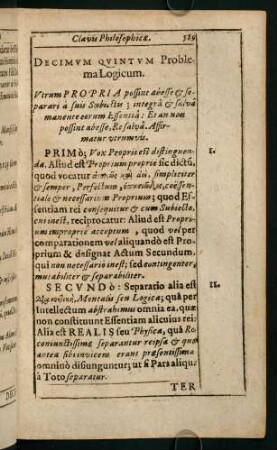 Clavis Philosophicæ. 519
DECIMVM QVINTVM Proble-
ma Logicum.
Vtrum PROPRIA possint abesse & se-
parari à suis Subiectis; integrâ & salvâ
manente eorum Essentiâ: Et an non
possint abesse, Re salvâ. Affir-
matur utrumvis.
PRIMò; Vox Proprii est distinguen-
da. Aliud est Proprium propriè sic dictũ,
quod vocatur simpliciter
& semper, Perfectum, coëssentia-
le & necessarium Proprium; quod Essen-
tiam rei consequitur & cum Subiecto,
cui inest, reciprocatur: Aliud est Propri-
um impropriè acceptum, quod vel per
comparationem vel aliquando est Pro-
prium & designat Actum Secundum,
qui non necessariò inest; sed contingenter,
mutabiliter & separabiliter.
I.
SECVNDò: Separatio alia est
Mentalis seu Logica; quâ per
Intellectum abstrahimus omnia ea, quæ
non constituunt Essentiam alicuius rei:
Alia est REALIS seu Physica, quâ Re
coniunctissima separantur reipsâ & quo
antea sibi invicem erant præsentissima
omninò disiunguntur; ut si Pars aliqua
à Toto separatur.
II.
TER